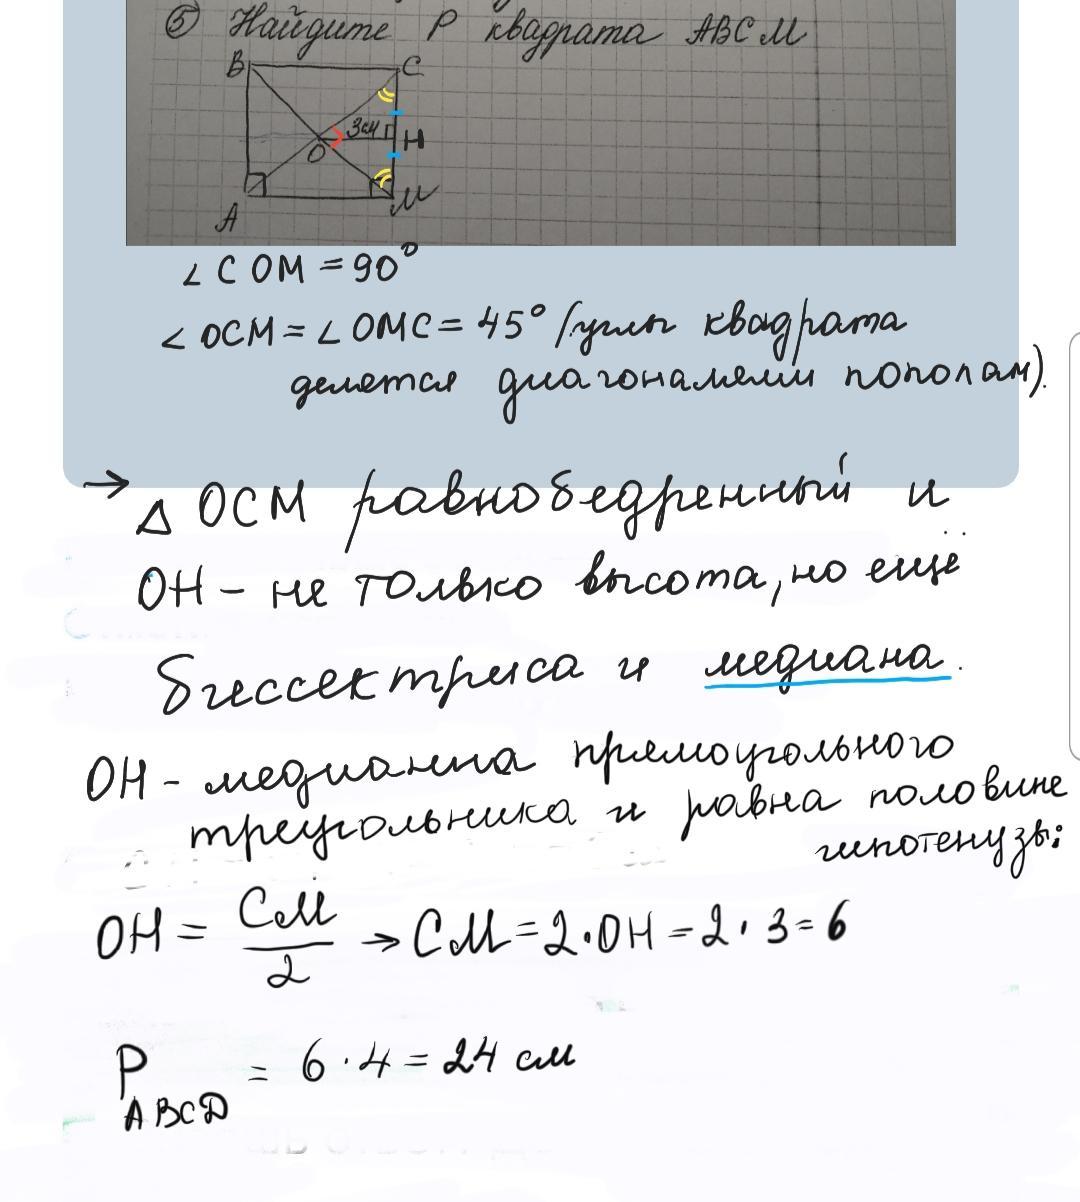 ⑤ Найдите P квадрата ABCM
B C
3см H
O
A M
∠COM = 90°
∠OCM = ∠OMC = 45° (углы квадрата
делется диагоналями пополам).
→ △ OCM равнобедренный и
OH - не только высота, но еще
биссектриса и медиана.
OH - медианна прямоугольного
треугольника и равна половине
гипотенузы:
OH = CM/2 → CM = 2·OH = 2·3 = 6
P ABCD = 6·4 = 24 см